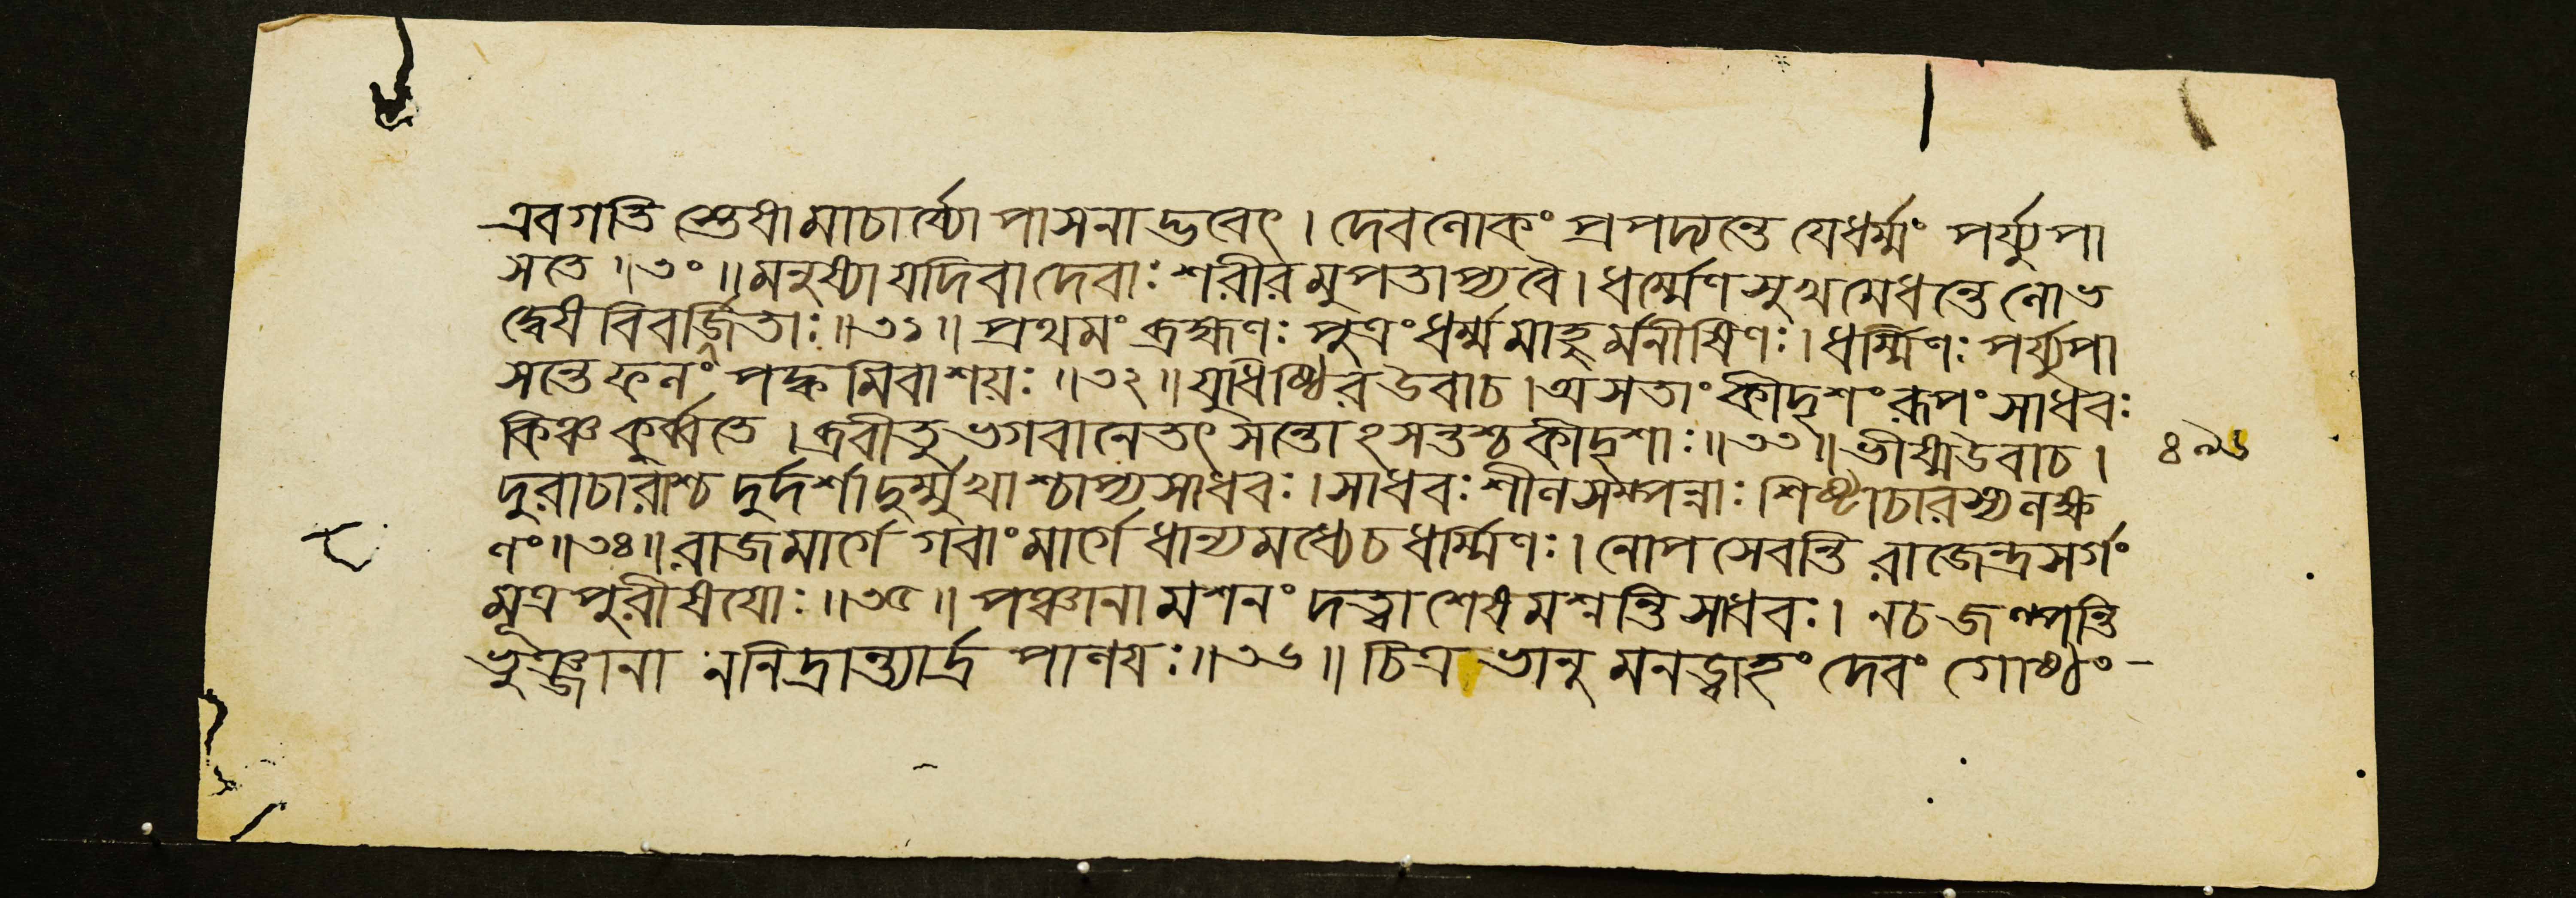 এবগতিস্তেষামাচার্য্যোপাসনাদ্ভবেৎ । দেবলোকং প্রপদ্যন্তে যেধর্ম্মং পর্য্যুপা
সতে ॥৩০॥ মনুষ্যা যদিবা দেবাঃ শরীরমুপতাপ্যবৈ । ধর্ম্মেণ সুখমেধন্তে লোভ
দ্বেষবিবর্জিতাঃ ॥৩১॥ প্রথমং ব্রহ্মণঃ পুত্রং ধর্ম্মমাহুর্মনীষিণঃ । ধর্ম্মিণঃ পর্য্যুপা
সন্তে ফলং পক্বমিবাশয়ঃ ॥৩২॥ যুধিষ্ঠির উবাচ । অসতাং কীদৃশং রূপং সাধবঃ
কিঞ্চ কুর্ব্বতে । ব্রবীতু ভগবানেতৎ সন্তোঽসন্তশ্চ কীদৃশাঃ ॥৩৩॥ ভীষ্মউবাচ ।
দুরাচারাশ্চ দুর্দর্শা দুর্ম্মুখাশ্চাপ্যসাধবঃ । সাধবঃ শীলসম্পন্নাঃ শিষ্টাচারস্যলক্ষ
ণং ॥৩৪॥ রাজমার্গে গবাংমার্গে ধান্যমধ্যেচ ধর্ম্মিণঃ । নোপসেবন্তি রাজেন্দ্র সর্গং
মূত্রপুরীষযোঃ ॥৩৫॥ পঞ্চানামশনং দত্ত্বা শেষমশ্নন্তি সাধবঃ । নচ জল্পন্তি
ভুঞ্জানা ননিদ্রান্ত্যার্দ্র পাণযঃ ॥৩৬॥ চিত্রভানুমনড্বাহং দেবং গোষ্ঠং-